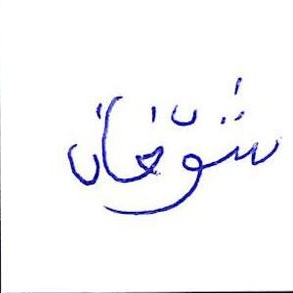 شوّفان